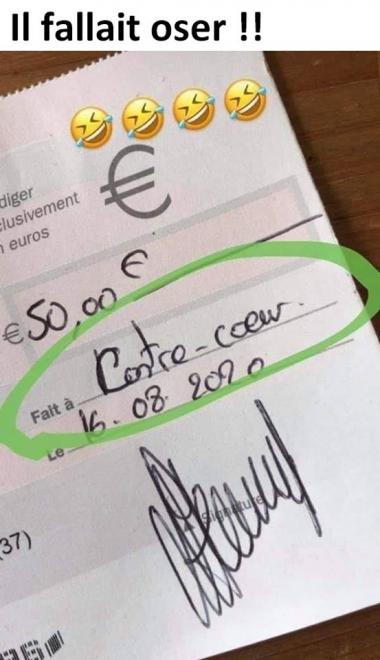 Il fallait oser !!
€
diger
clusivement
n euros
€50,00 €
Fait à Contre-coeur.
Le 16.08.2020
Signature
37)